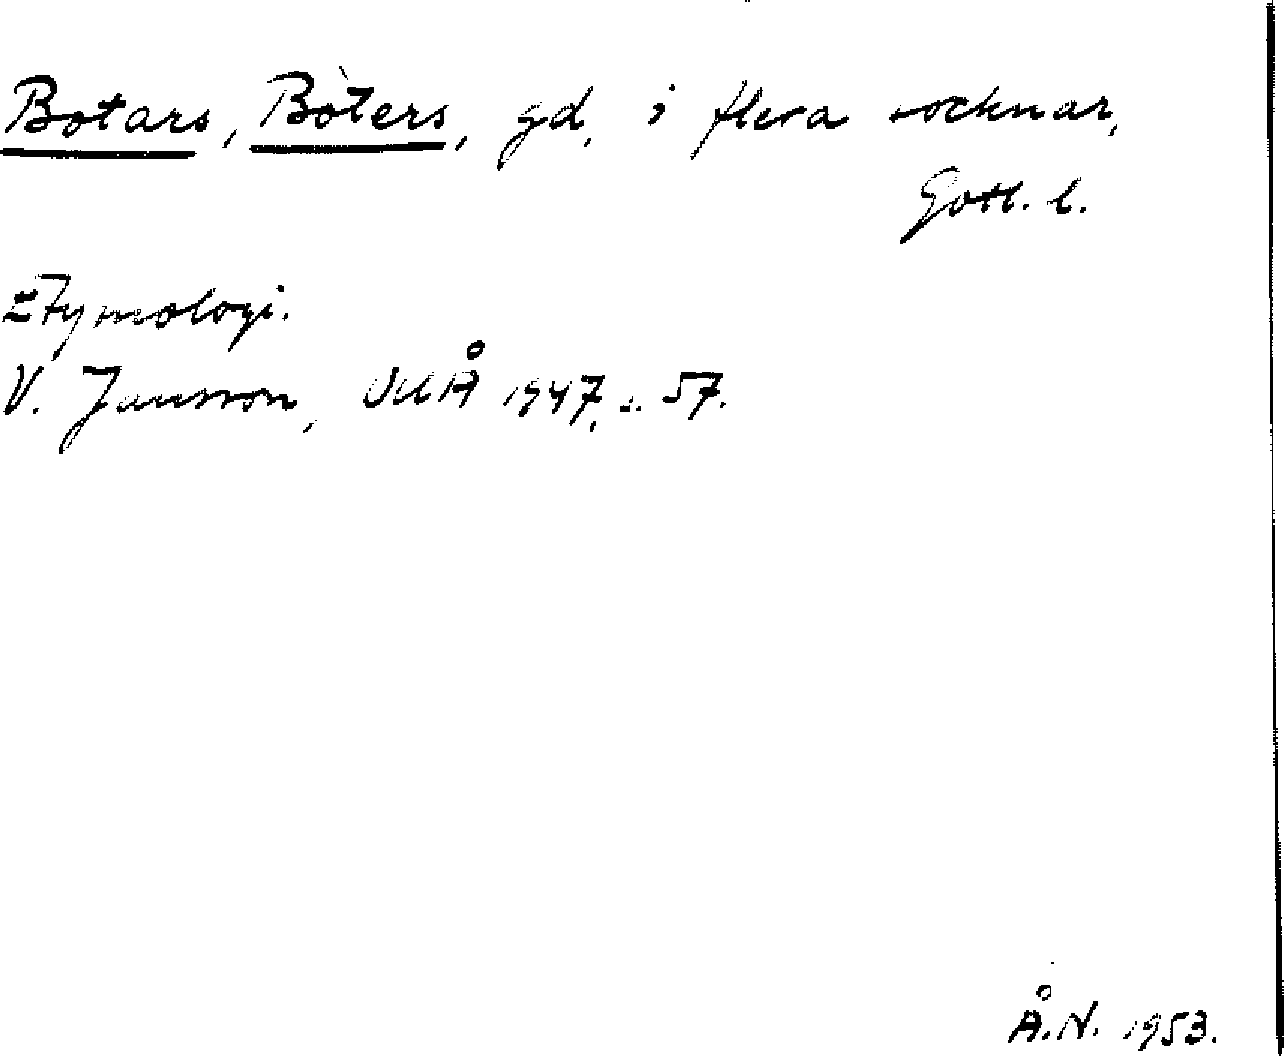 Botars, Boters, gd. i flera socknar,
Gotl. l.
Etymologi.
V. Jansson, VUÅ 1947, s. 57.
Å.N. 1953.